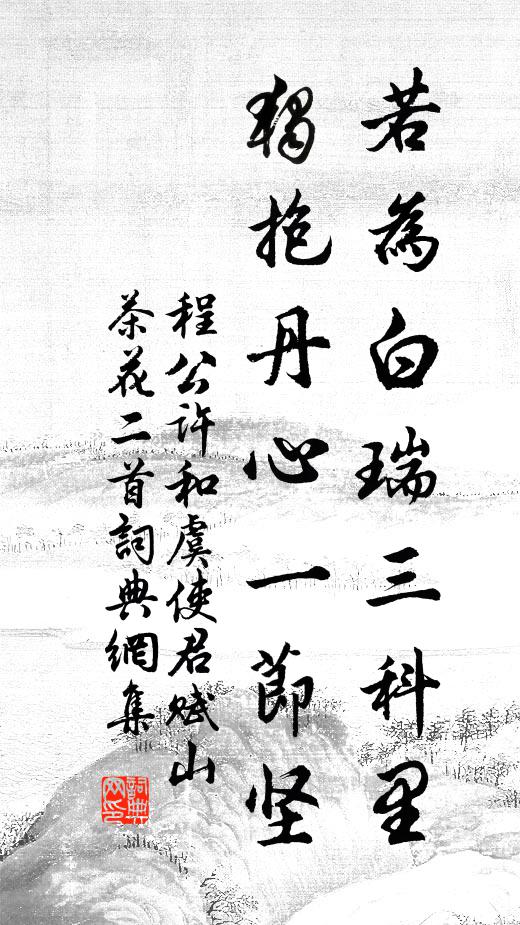 若為白瑞三科里
獨抱丹心一節坚
程公許和虞使君賦山
茶花二首詞典網集
詞典
网印